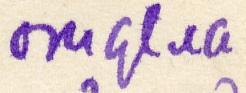 отдела